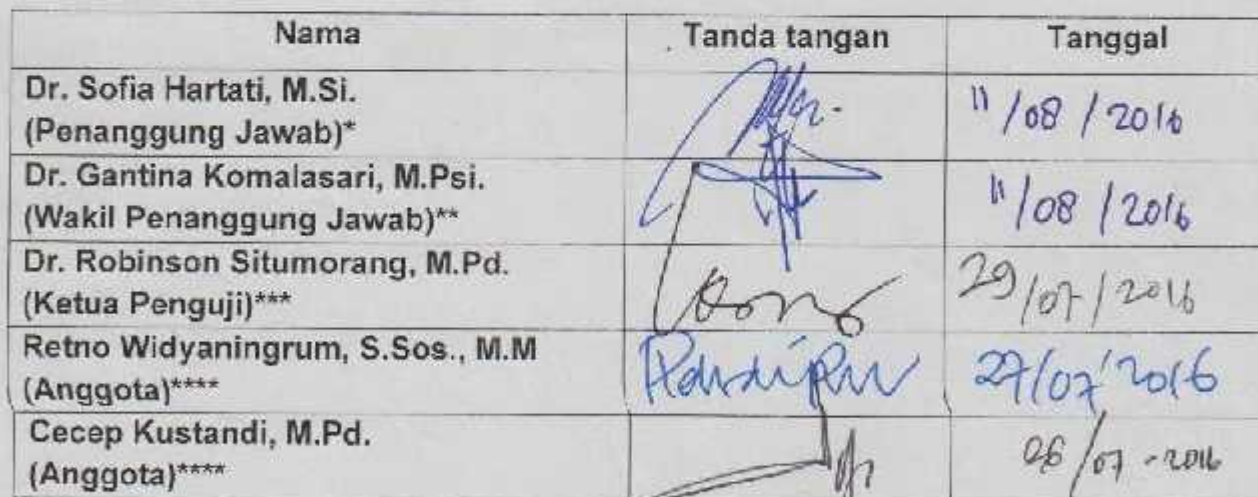 Nama Tanda tangan Tanggal
Dr. Sofia Hartati, M.Si.
(Penanggung Jawab)* 11/08/2016
Dr. Gantina Komalasari, M.Psi.
(Wakil Penanggung Jawab)** 11/08/2016
Dr. Robinson Situmorang, M.Pd.
(Ketua Penguji)*** 29/07/2016
Retno Widyaningrum, S.Sos., M.M
(Anggota)**** 27/07/2016
Cecep Kustandi, M.Pd.
(Anggota)**** 26/07-2016